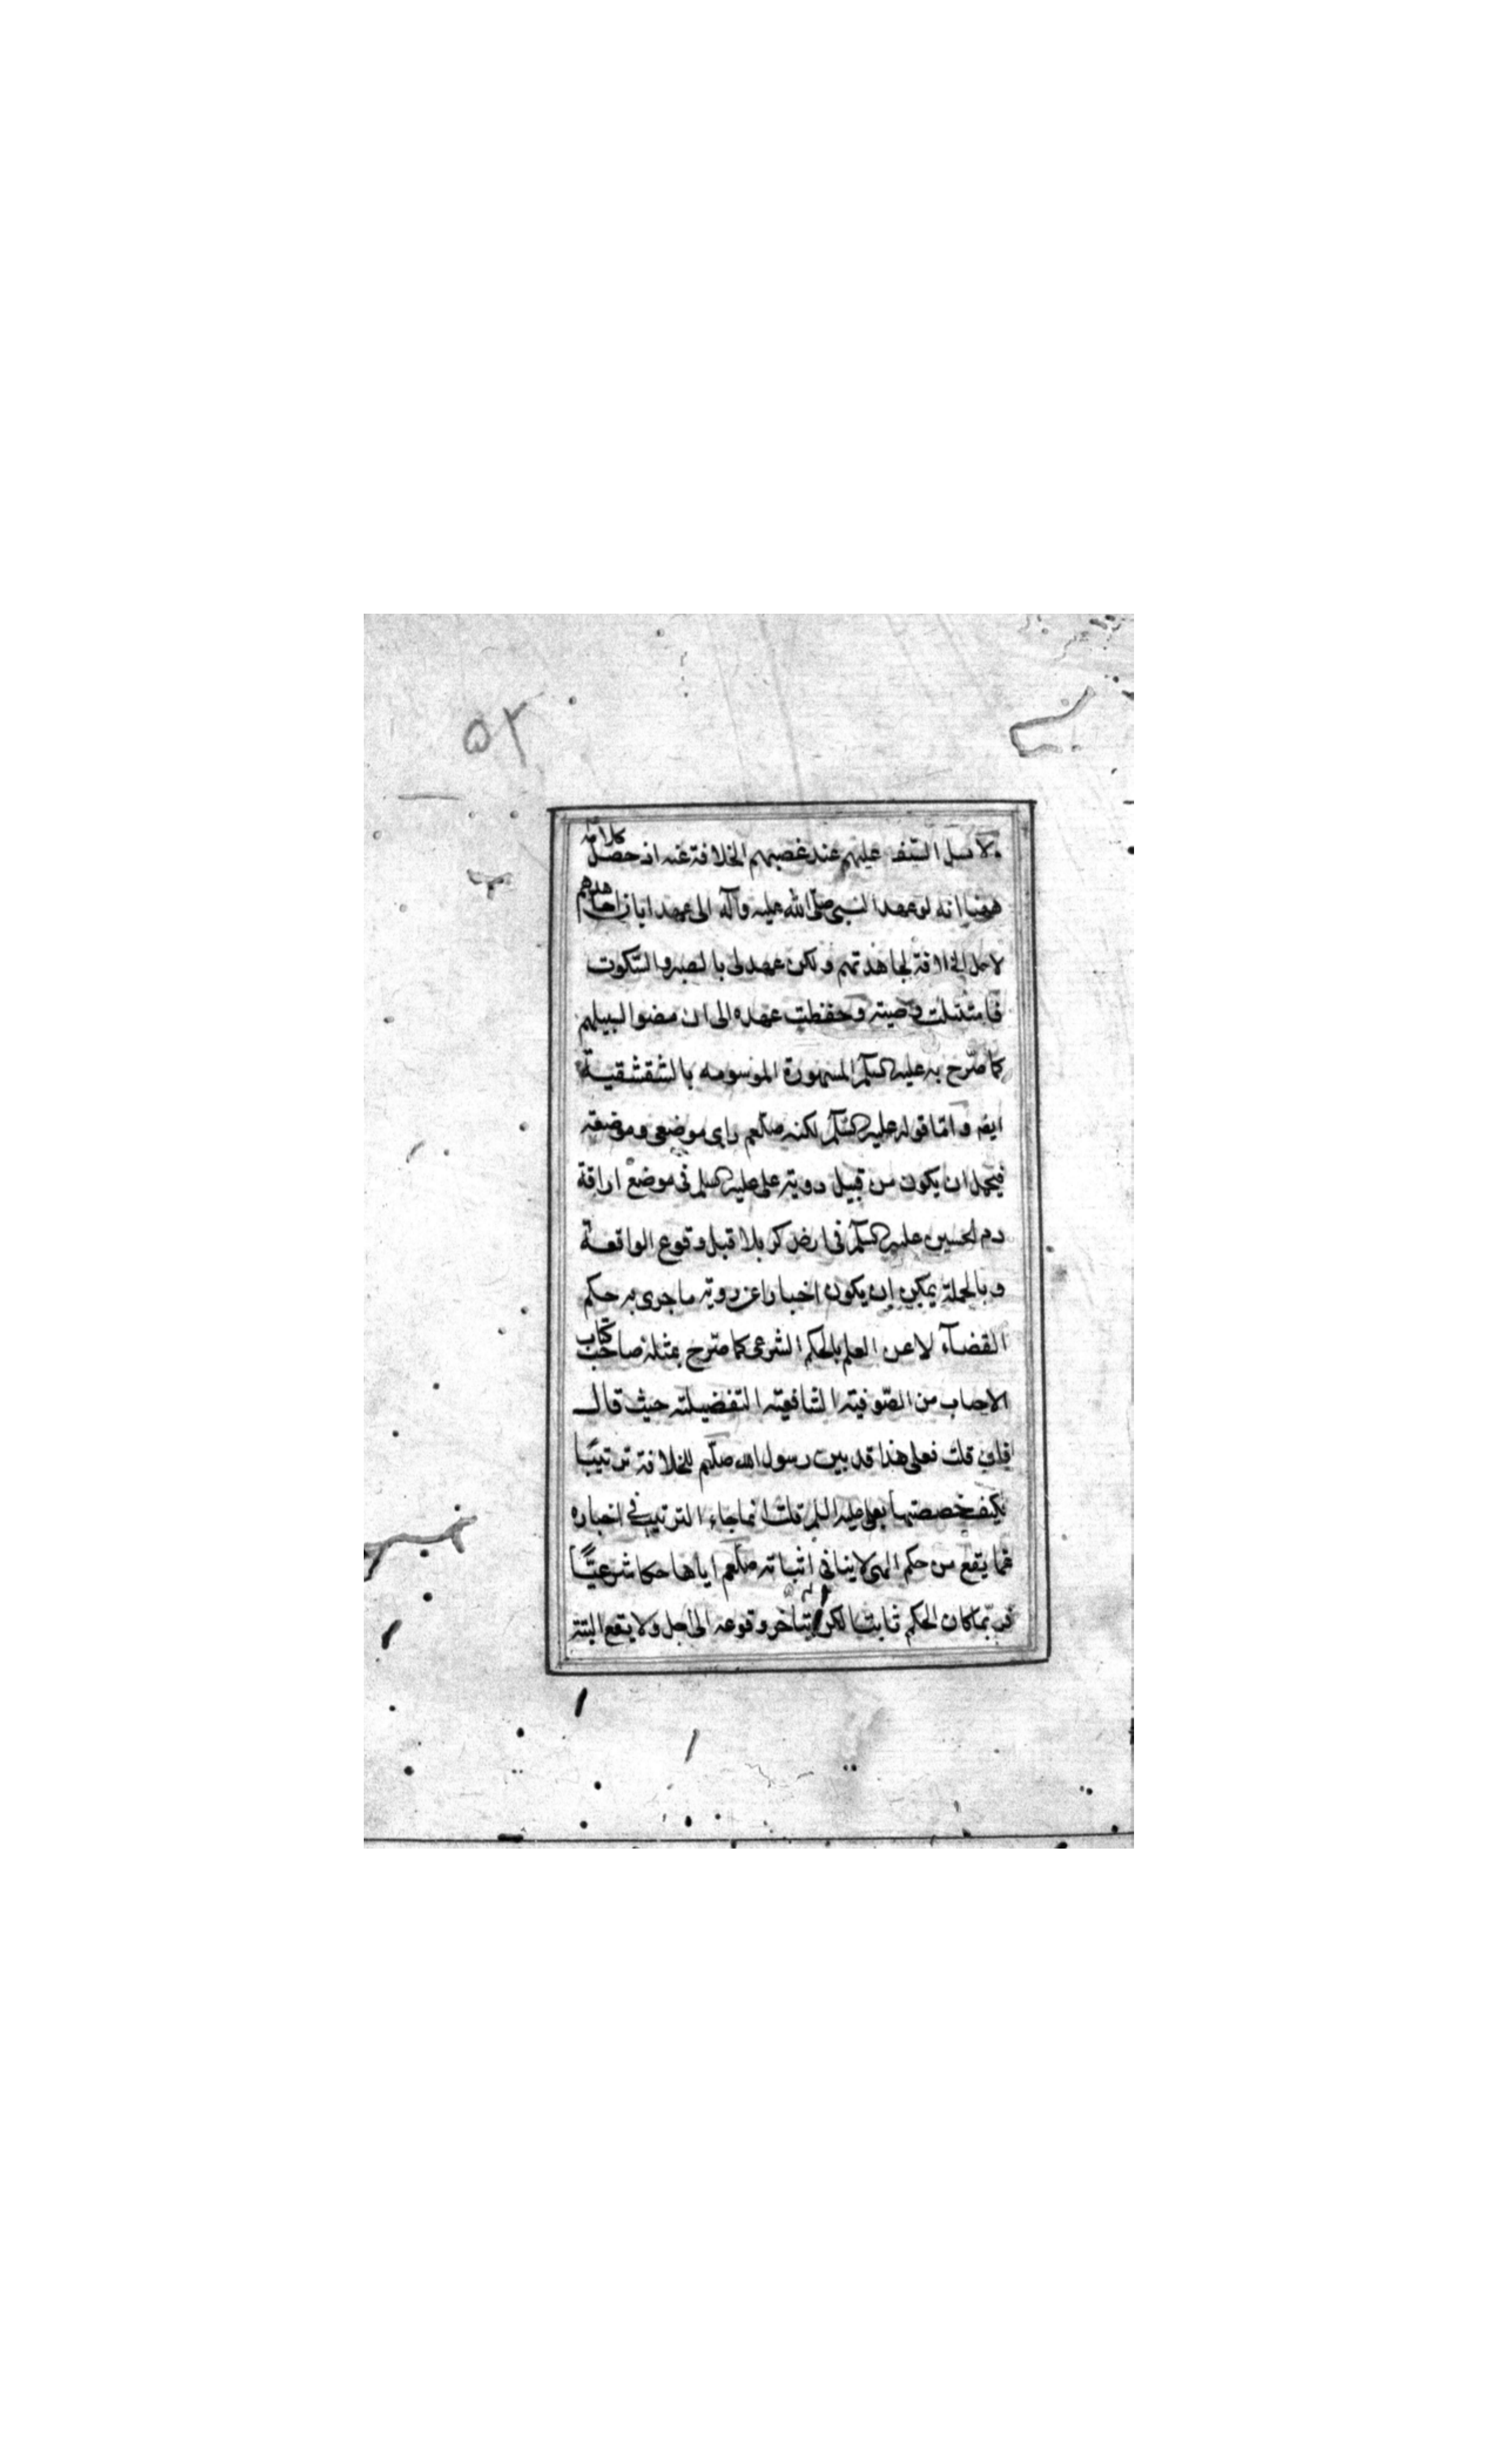 ۵۲
ولا سل السيف عليهم عند غصبهم الخلافة عنه اذ حصل كلامه
ههنا انه لو عهد النبي صلى الله عليه وآله الى عهدا بان اجاهدهم
لاجل الخلافة لجاهدتهم ولكن عهد لى بالصبر والسكوت
فامتثلت وصيته وحفظت عهده الى ان مضوا لسبيلهم
كما صرح به عليه السلم المشهورة الموسومه بالشقشقية
ايضه واما قوله عليه السلم لكنه صلعم راى موضعى وموضعه
فيحمل ان يكون من قبيل رويته على عليه السلم فى موضع اراقة
دم الحسين عليه السلم فى ارض كربلا قبل وقوع الواقعة
وبالجملة يمكن ان يكون اخبارا عن رويته ما جرى به حكم
القضآء لا عن العلم بالحكم الشرعى كما صرح بمثله صاحب كتاب
الاحباب من الصوفية الشافعية التفضيلية حيث قال
فان قلت فعلى هذا قد بين رسول الله صلعم للخلافة ترتيبا
فكيف خصصتها بعلى عليه السلم قلت انما جاء الترتيب فى اخباره
فما يقع من حكم الهى لا ينافى اثباته صلعم اياها حكما شرعيا
فربما كان الحكم ثابتا لكن يتاخر وقوعه الى اجل ولا يقع البتة